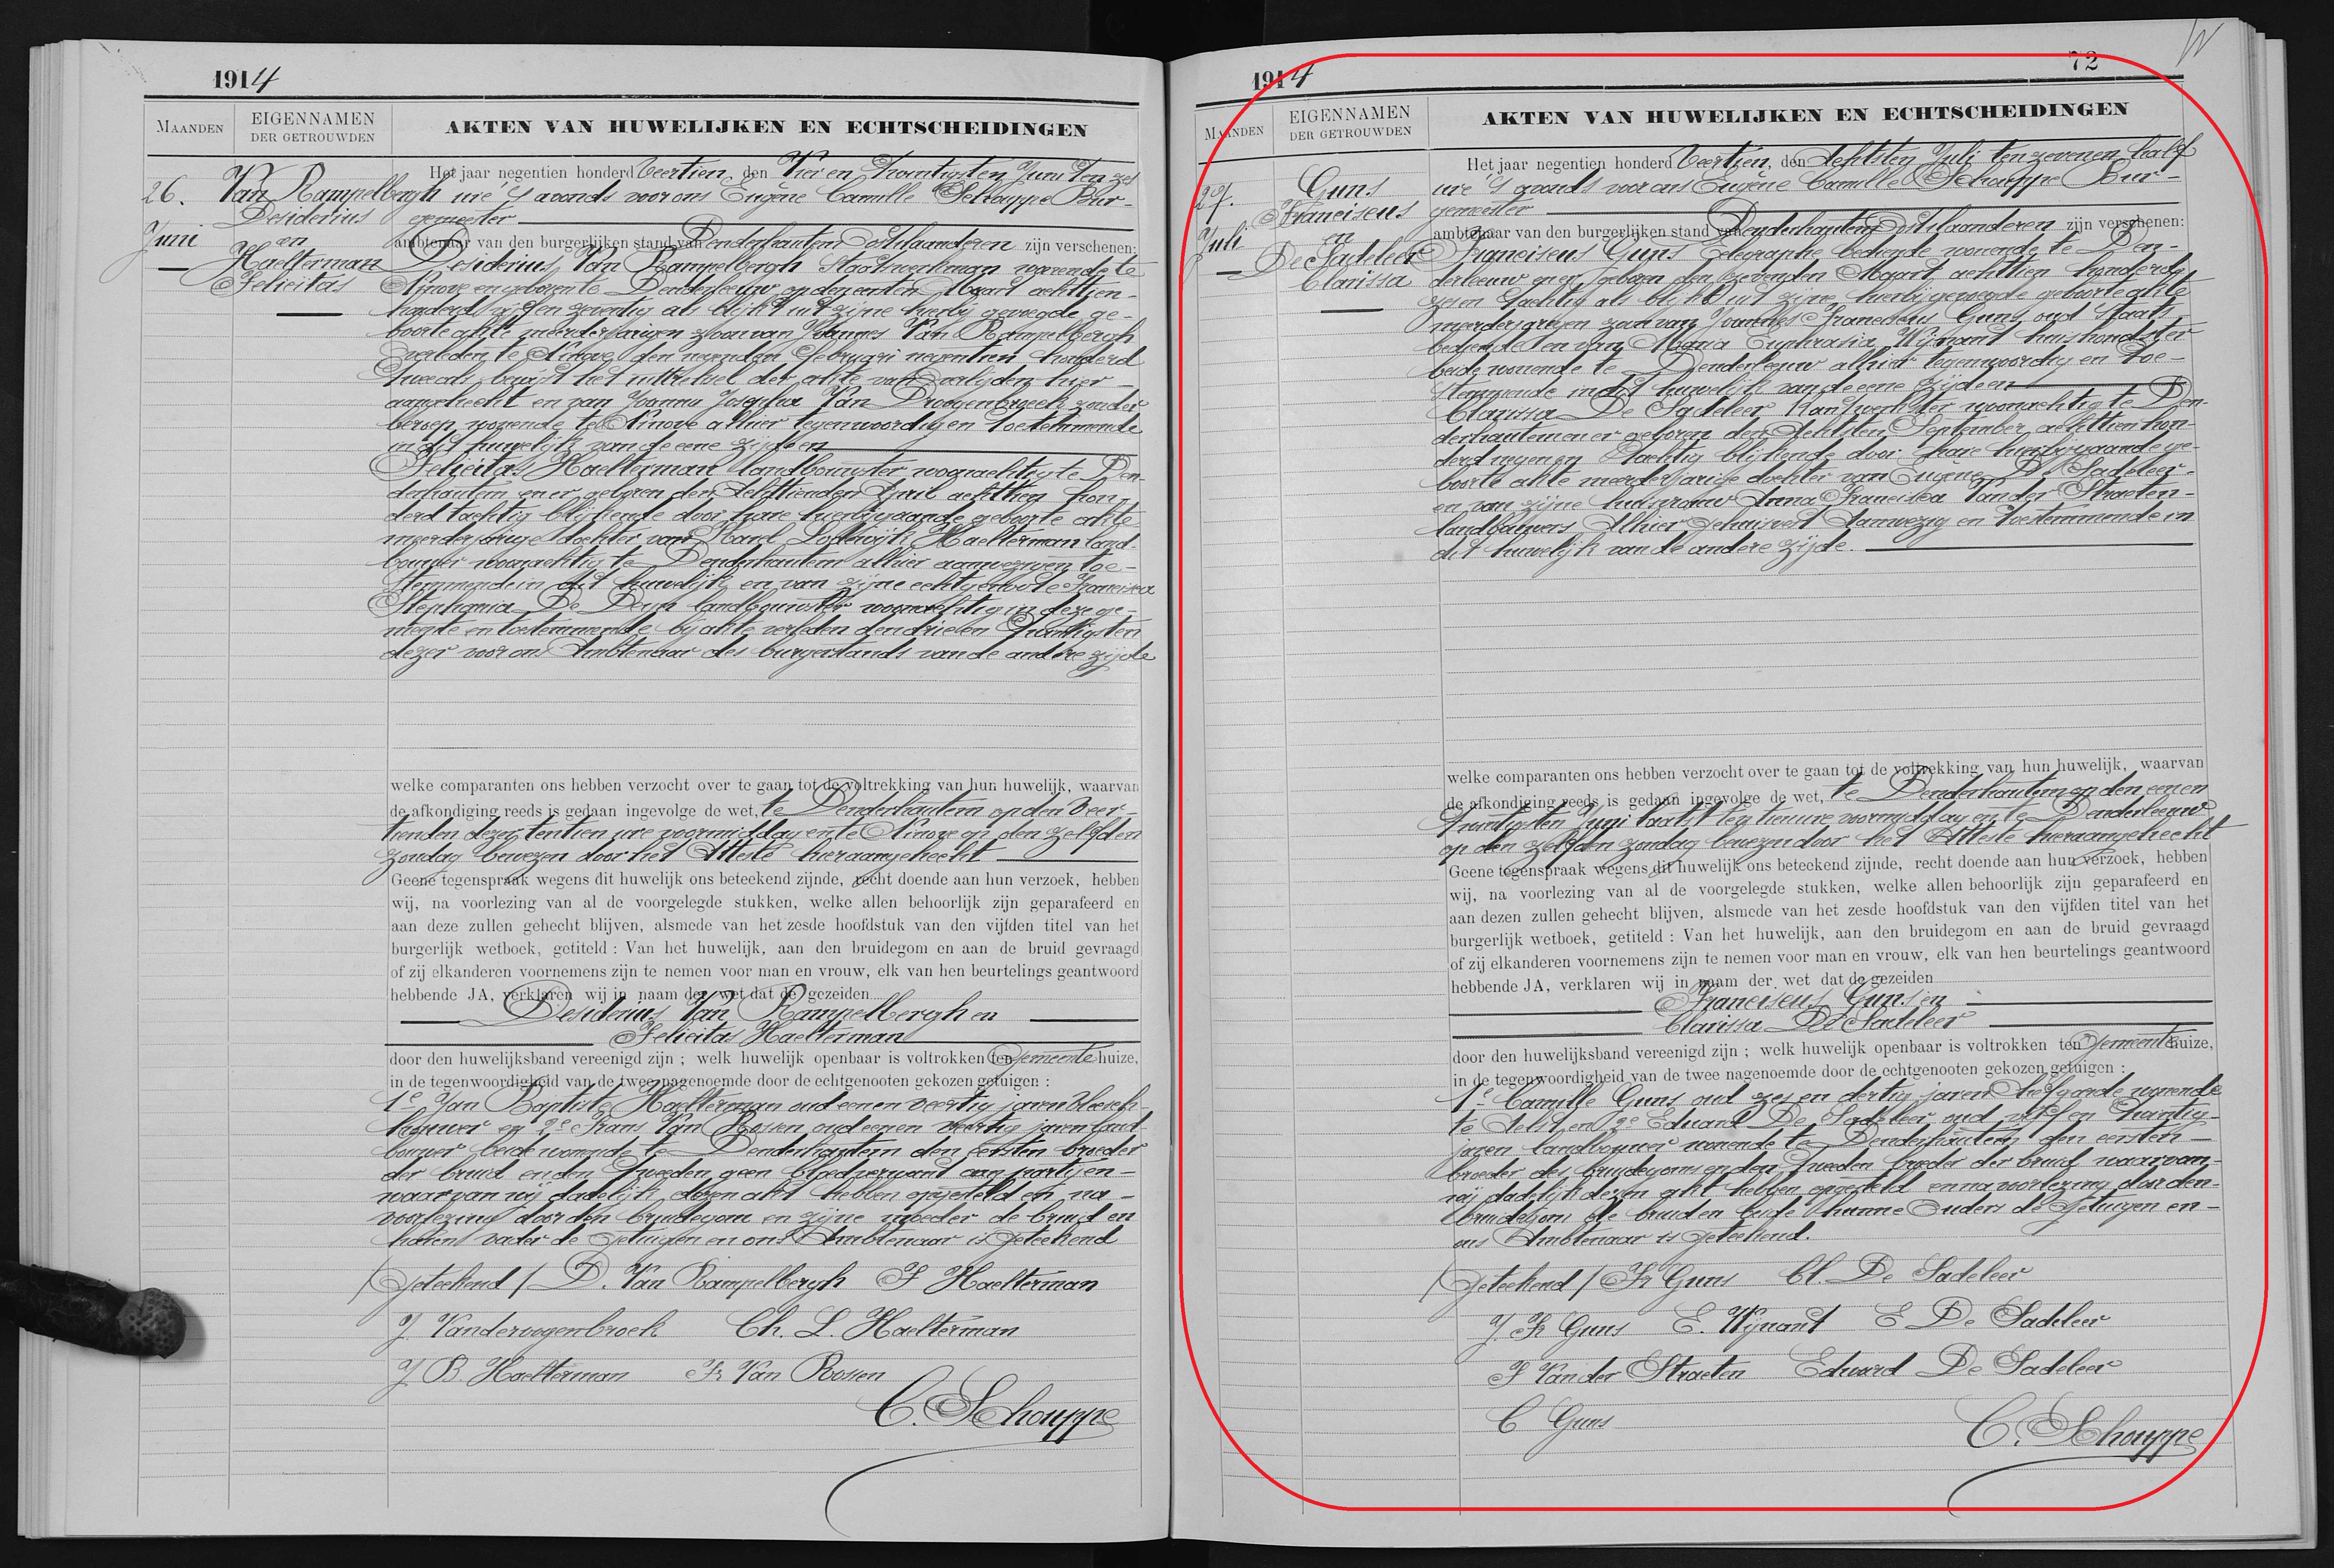 1914
MAANDEN
EIGENNAMEN
DER GETROUWDEN
AKTEN VAN HUWELIJKEN EN ECHTSCHEIDINGEN
26.
Juni
Van Rampelbergh
Desiderius
en
Haelterman
Felicitas
Het jaar negentien honderd Veertien, den Zes en Twintigsten Juni ten zes
ure 's avonds voor ons Eugène Camille Schouppe Bur-
gemeester
ambtenaar van den burgerlijken stand van Denderhautem Oostvlaanderen zijn verschenen:
Desiderius Van Rampelbergh Staatswerkman wonende te
Ninove en geboren te Denderleeuw op den eersten Maart achttien-
honderd en zeventig als blijkt uit zijne hierbij gevoegde ge-
boorte akte meerderjarigen zoon van Joannes Van Rampelbergh
overleden te Ninove den negenden Februari negentien honderd
twee als bewijst het uittreksel der akte van overlijden hier
aangehecht en van Joanna Josepha Van Droogenbroeck zonder
beroep wonende te Ninove alhier tegenwoordig en toestemmende
in dit huwelijk van de eene zijde en
Felicitas Haelterman landbouwster woonachtig te Den-
derhautem en er geboren den achttienden April achttien hon-
derd tachtig blijkende door hare hierbijgaande geboorte akte
meerderjarige dochter van Karel Lodewijk Haelterman land-
bouwer woonachtig te Denderhautem alhier aanwezig en toe-
stemmende in dit huwelijk en van zijne echtgenoote Francisca
Stephania De Deyn landbouwster woonachtig in deze ge-
meente en toestemmende bij akte verleden den drie en twintigsten
dezer voor ons Ambtenaar des burgerstands van de andere zijde
welke comparanten ons hebben verzocht over te gaan tot de voltrekking van hun huwelijk, waarvan
de afkondiging reeds is gedaan ingevolge de wet, te Denderhautem op den Veer-
tienden dezer ten tien ure voormiddag en te Ninove op den zelfden
zondag bewezen door het Atteste hieraangehecht
Geene tegenspraak wegens dit huwelijk ons beteekend zijnde, recht doende aan hun verzoek, hebben
wij, na voorlezing van al de voorgelegde stukken, welke allen behoorlijk zijn geparafeerd en
aan deze zullen gehecht blijven, alsmede van het zesde hoofdstuk van den vijfden titel van het
burgerlijk wetboek, getiteld : Van het huwelijk, aan den bruidegom en aan de bruid gevraagd
of zij elkanderen voornemens zijn te nemen voor man en vrouw, elk van hen beurtelings geantwoord
hebbende JA, verklaren wij in naam der wet dat de gezeiden
Desiderius Van Rampelbergh en
Felicitas Haelterman
door den huwelijksband vereenigd zijn ; welk huwelijk openbaar is voltrokken ten Gemeentehuize,
in de tegenwoordigheid van de twee nagenoemde door de echtgenooten gekozen getuigen :
1e Jan Baptiste Haelterman oud een en veertig jaren Vleesch-
houwer en 2e Frans Van Rossen oud een en veertig jaren land-
bouwer beide wonende te Denderhautem den eersten broeder
der bruid en den tweeden geen bloedverwant aan partijen-
waarvan wij dadelijk dezen akt hebben opgesteld en na-
voorlezing door den bruidegom en zijne moeder de bruid en
haren vader de getuigen en ons Ambtenaar is geteekend
/Geteekend/ D. Van Rampelbergh F Haelterman
J. Vandroogenbroeck Ch. L. Haelterman
J B Haelterman Fr Van Rossen
C. Schouppe
1914
72
MAANDEN
EIGENNAMEN
DER GETROUWDEN
AKTEN VAN HUWELIJKEN EN ECHTSCHEIDINGEN
27.
Juli
Guns
Franciscus
en
De Sadeleer
Clarissa
Het jaar negentien honderd Veertien, den Achtsten Juli ten zevenen half
ure 's avonds voor ons Eugène Camille Schouppe Bur-
gemeester
ambtenaar van den burgerlijken stand van Denderhautem Oostvlaanderen zijn verschenen:
Franciscus Guns Telegraphe bediende wonende te Den-
derleeuw en er geboren den zevenden Maart achttien honderd
zes en tachtig als blijkt uit zijne hierbijgevoegde geboorte akte
meerderjarigen zoon van Joannes Franciscus Guns oud Staats-
bediende en van Maria Euphrasia Wijnant huishoudster
beide wonende te Denderleeuw alhier tegenwoordig en toe-
stemmende in dit huwelijk van de eene zijde en
Clarissa De Sadeleer Kantwerkster woonachtig te Den-
derhautem en er geboren den Achtsten September achttien hon-
derd negen en tachtig blijkende door hare hierbijgaande ge-
boorte akte meerderjarige dochter van Eugène De Sadeleer-
en van zijne huisvrouw Anna Francisca Van der Straeten-
landbouwers Alhier gehuisvest Aanwezig en toestemmende in
dit huwelijk van de andere zijde.
welke comparanten ons hebben verzocht over te gaan tot de voltrekking van hun huwelijk, waarvan
de afkondiging reeds is gedaan ingevolge de wet, te Denderhautem op den een en
Twintigsten Juni laatst ten tien ure voormiddag en te Denderleeuw
op den zelfden zondag bewezen door het Atteste hieraangehecht
Geene tegenspraak wegens dit huwelijk ons beteekend zijnde, recht doende aan hun verzoek, hebben
wij, na voorlezing van al de voorgelegde stukken, welke allen behoorlijk zijn geparafeerd en
aan dezen zullen gehecht blijven, alsmede van het zesde hoofdstuk van den vijfden titel van het
burgerlijk wetboek, getiteld : Van het huwelijk, aan den bruidegom en aan de bruid gevraagd
of zij elkanderen voornemens zijn te nemen voor man en vrouw, elk van hen beurtelings geantwoord
hebbende JA, verklaren wij in naam der wet dat de gezeiden
Franciscus Guns en
Clarissa De Sadeleer
door den huwelijksband vereenigd zijn ; welk huwelijk openbaar is voltrokken ten Gemeentehuize,
in de tegenwoordigheid van de twee nagenoemde door de echtgenooten gekozen getuigen :
1e Camille Guns oud zes en dertig jaren wonende
te Aelst en 2e Eduard De Sadeleer oud vijf en twintig-
jaren landbouwer wonende te Denderhautem den eersten-
broeder des bruidegoms en den tweeden broeder der bruid waarvan-
wij dadelijk dezen akt hebben opgesteld en na voorlezing door den-
bruidegom de bruid en beide hunne Ouders de Getuigen en-
ons Ambtenaar is geteekend.
/Geteekend/ Fr Guns Cl. De Sadeleer
J. Fr Guns E. Wijnant E De Sadeleer
F Van der Straeten Eduard De Sadeleer
C Guns
C. Schouppe